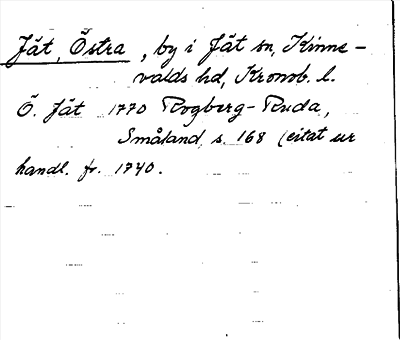 Jät, Östra, by i Jät sn, Kinne-
valds hd, Kronob. l.
Ö. Jät 1770 Rogberg-Ruda,
Småland, s. 168 (citat ur
handl. fr. 1740.